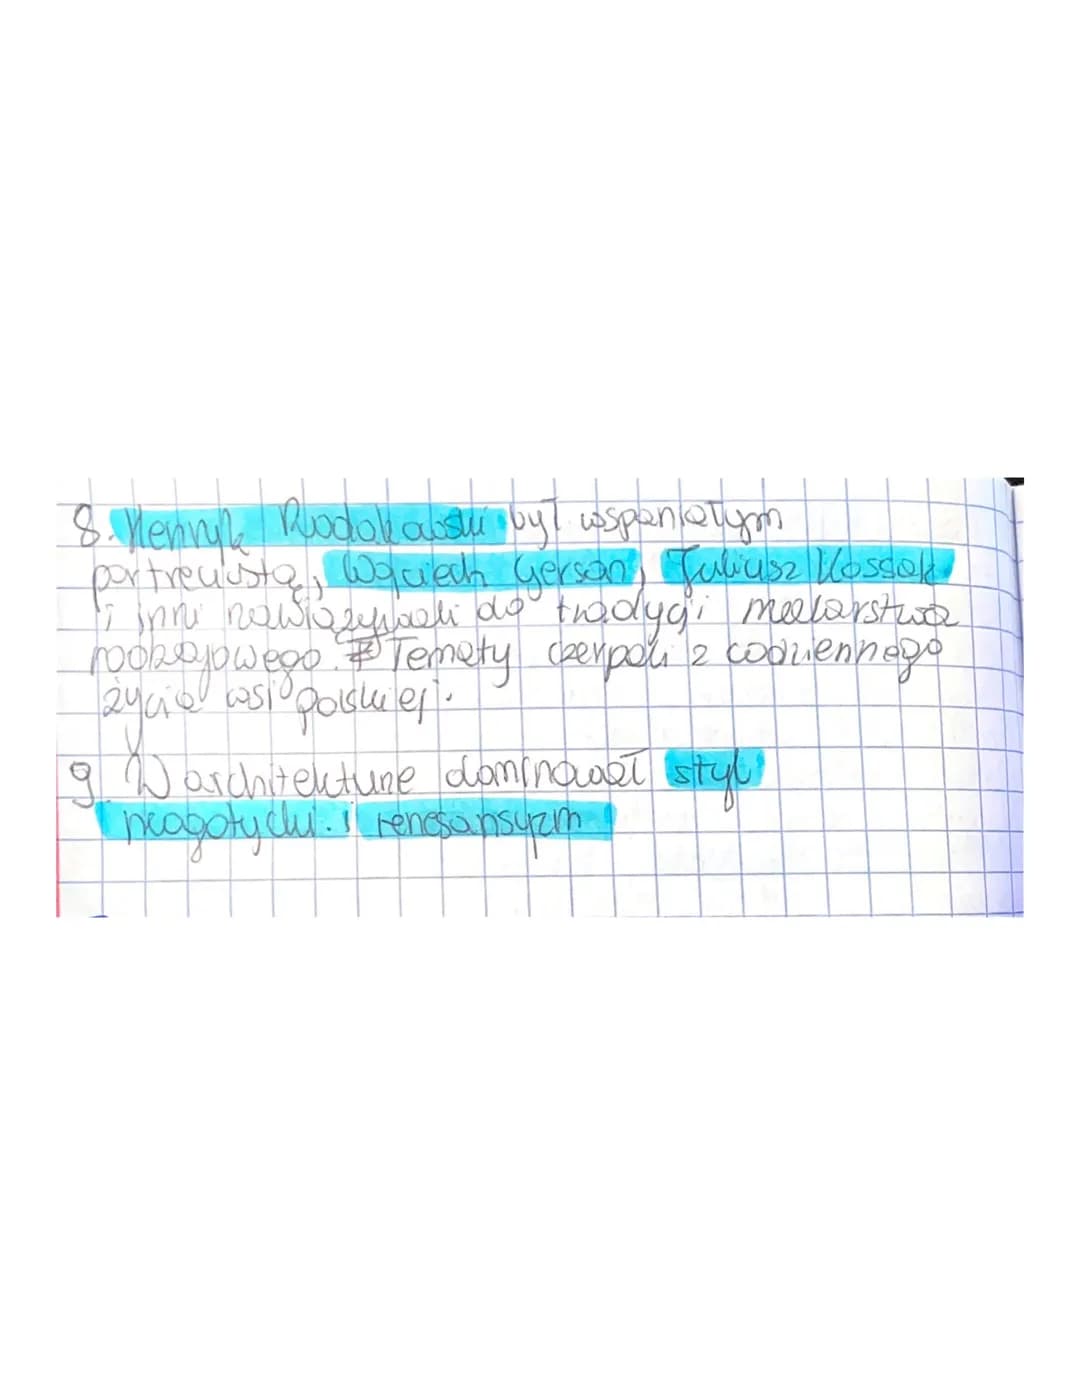 8. Henryk Rodakowski był wspaniałym
portrecistą, Wojciech Gerson, Juliusz Kossak
i inni nawiązywali do tradycji malarstwa
rodzajowego. Tematy czerpali z codziennego
życia wsi polskiej.
9. W architekturze dominował styl
neogotycki. i renesansyzm